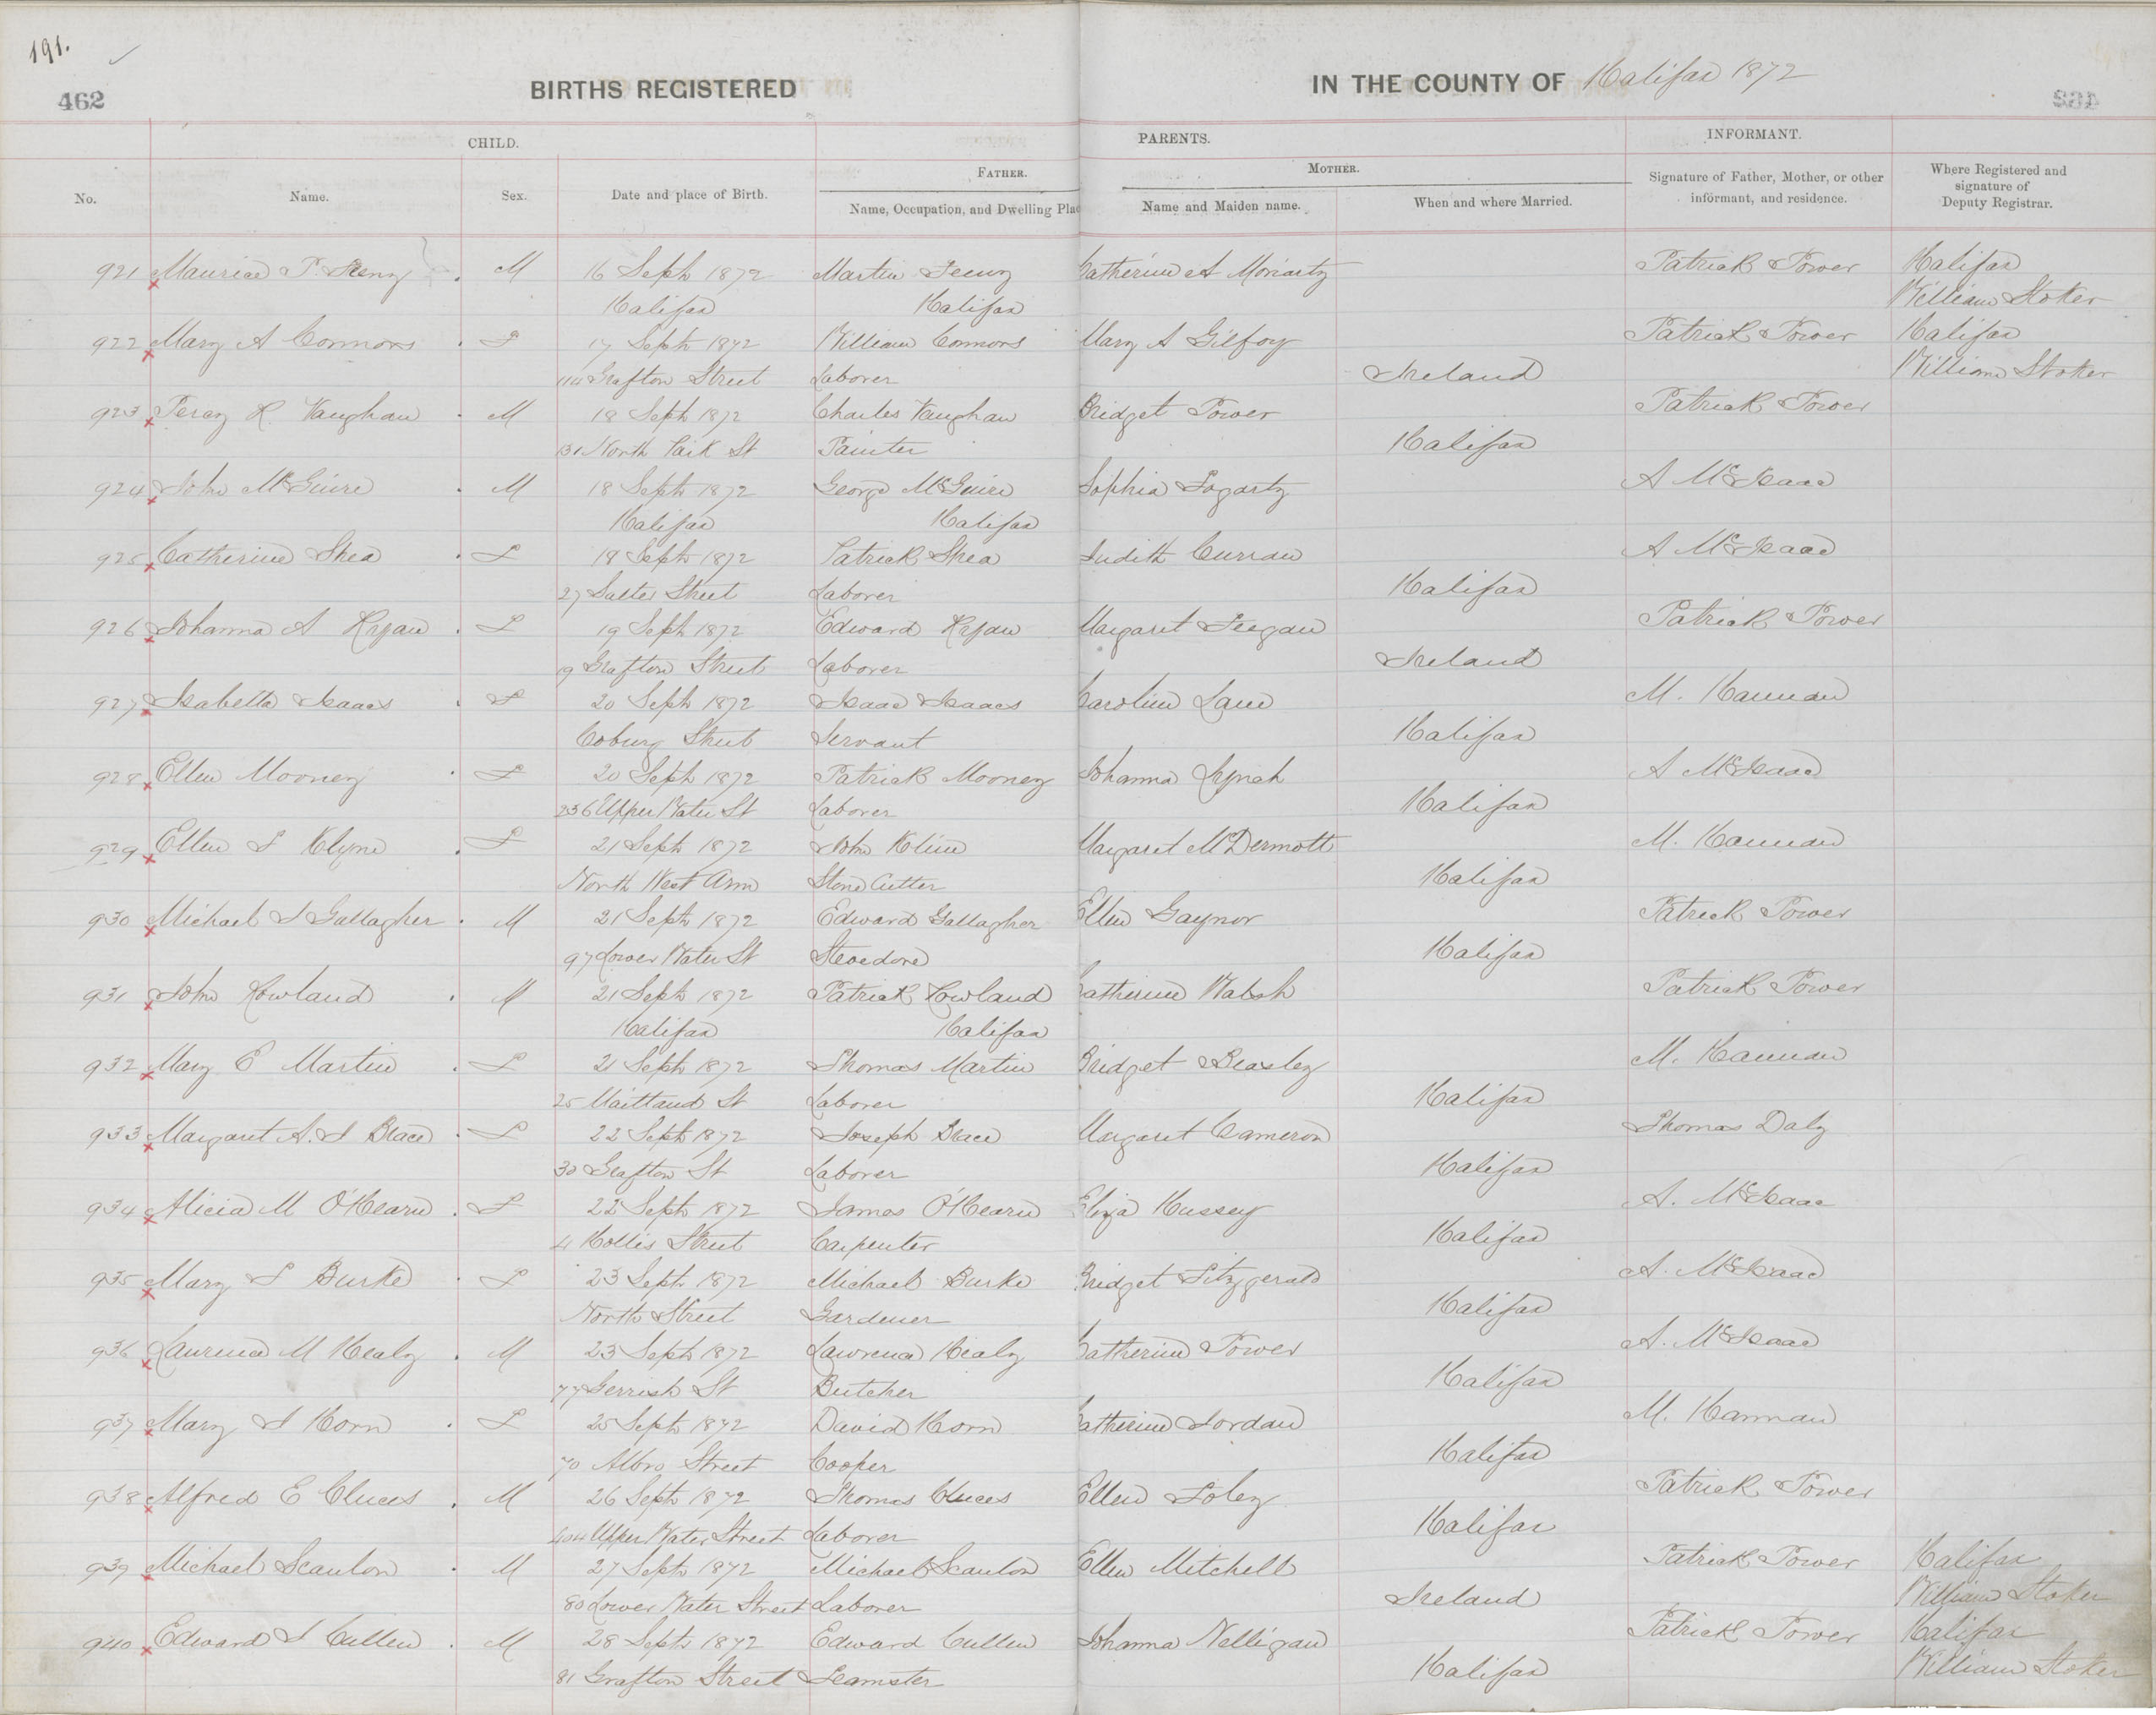 191.
462
BIRTHS REGISTERED IN THE COUNTY OF Halifax 1872
CHILD. PARENTS. INFORMANT.
FATHER. MOTHER.
No. Name. Sex. Date and place of Birth. Name, Occupation, and Dwelling Plac Name and Maiden name. When and where Married. Signature of Father, Mother, or other informant, and residence. Where Registered and signature of Deputy Registrar.
921 Maurice P. Feeny M 16 Sept 1872 Martin Feeny Catherine A Moriarty Patrick Power Halifax
Halifax Halifax William Stoker
922 Mary A Connors F 17 Sept 1872 William Connors Mary A Gilfoy Patrick Power Halifax
114 Grafton Street Laborer Ireland William Stoker
923 Percy R. Vaughan M 18 Sept 1872 Charles Vaughan Bridget Power Patrick Power
131 North Park St Painter Halifax
924 John McGuire M 18 Sept 1872 George McGuire Sophia Fogarty A McIsaac
Halifax Halifax
925 Catherine Shea F 18 Sept 1872 Patrick Shea Judith Curran A McIsaac
27 Salter Street Laborer Halifax
926 Johanna A Ryan F 19 Sept 1872 Edward Ryan Margaret Feegan Patrick Power
19 Grafton Street Laborer Ireland
927 Isabella Isaacs F 20 Sept 1872 Isaac Isaacs Caroline Lane M. Hannan
Coburg Street Servant Halifax
928 Ellen Mooney F 20 Sept 1872 Patrick Mooney Johanna Lynch A McIsaac
236 Upper Water St Laborer Halifax
929 Ellen J Klyne F 21 Sept 1872 John Kline Margaret McDermott M. Hannan
North West Arm Stone Cutter Halifax
930 Michael J Gallagher M 21 Sept 1872 Edward Gallagher Ellen Gaynor Patrick Power
97 Lower Water St Stevedore Halifax
931 John Rowland M 21 Sept 1872 Patrick Rowland Catherine Walsh Patrick Power
Halifax Halifax
932 Mary E Martin F 21 Sept 1872 Thomas Martin Bridget Beasley M. Hannan
25 Maitland St Laborer Halifax
933 Margaret A. J Brace F 22 Sept 1872 Joseph Brace Margaret Cameron Thomas Daly
30 Grafton St Laborer Halifax
934 Alicia M O'Hearn F 22 Sept 1872 James O'Hearn Eliza Hussey A. McIsaac
41 Hollis Street Carpenter Halifax
935 Mary J Burke F 23 Sept 1872 Michael Burke Bridget Fitzgerald A. McIsaac
North Street Gardener Halifax
936 Laurence M Healy M 23 Sept 1872 Lawrence Healy Catherine Power A. McIsaac
77 Gerrish St Butcher Halifax
937 Mary J Horn F 25 Sept 1872 David Horn Catherine Jordan M. Hannan
70 Albro Street Cooper Halifax
938 Alfred E Cluces M 26 Sept 1872 Thomas Cluces Ellen Foley Patrick Power
404 Upper Water Street Laborer Halifax
939 Michael Scanlon M 27 Sept 1872 Michael Scanlon Ellen Mitchell Patrick Power Halifax
80 Lower Water Street Laborer Ireland William Stoker
940 Edward J Cullen M 28 Sept 1872 Edward Cullen Johanna Nelligan Patrick Power Halifax
81 Grafton Street Teamster Halifax William Stoker